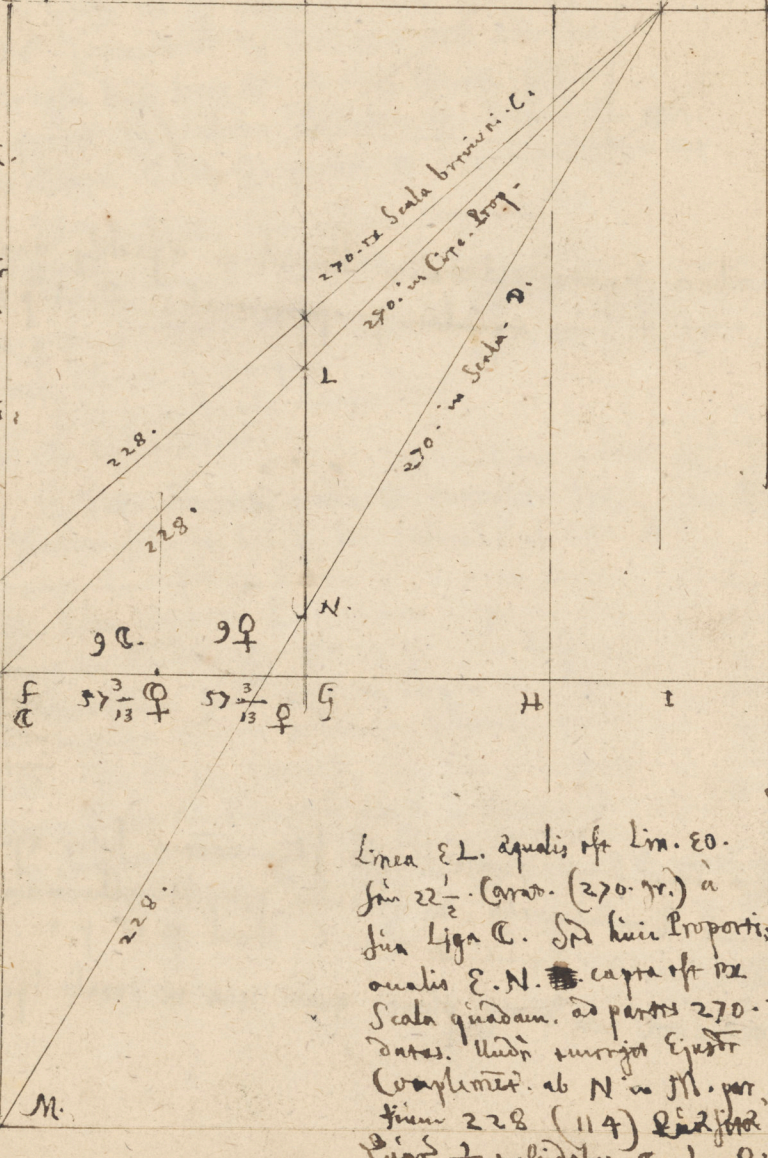 270. ex Scala breviori. C.
270. in Circ. Prop.
270. in Scala. D.
L
228.
228.
N.
9 ☾. 9 ♀
F 57 3/13 ♀ 57 3/13 ♀ G H I
☾
228.
Linea EL. æqualis est Lin. EO.
seu 22 1/2. Carat. (270. gr.) à
sua Liga ☾. Sed huic Proporti:
onalis E. N. capta est ex
Scala quadam. ad partes 270.
datas. Unde emerget Ejusdē
Complemēt. ab N in M. par
tium 228 (114)
M.